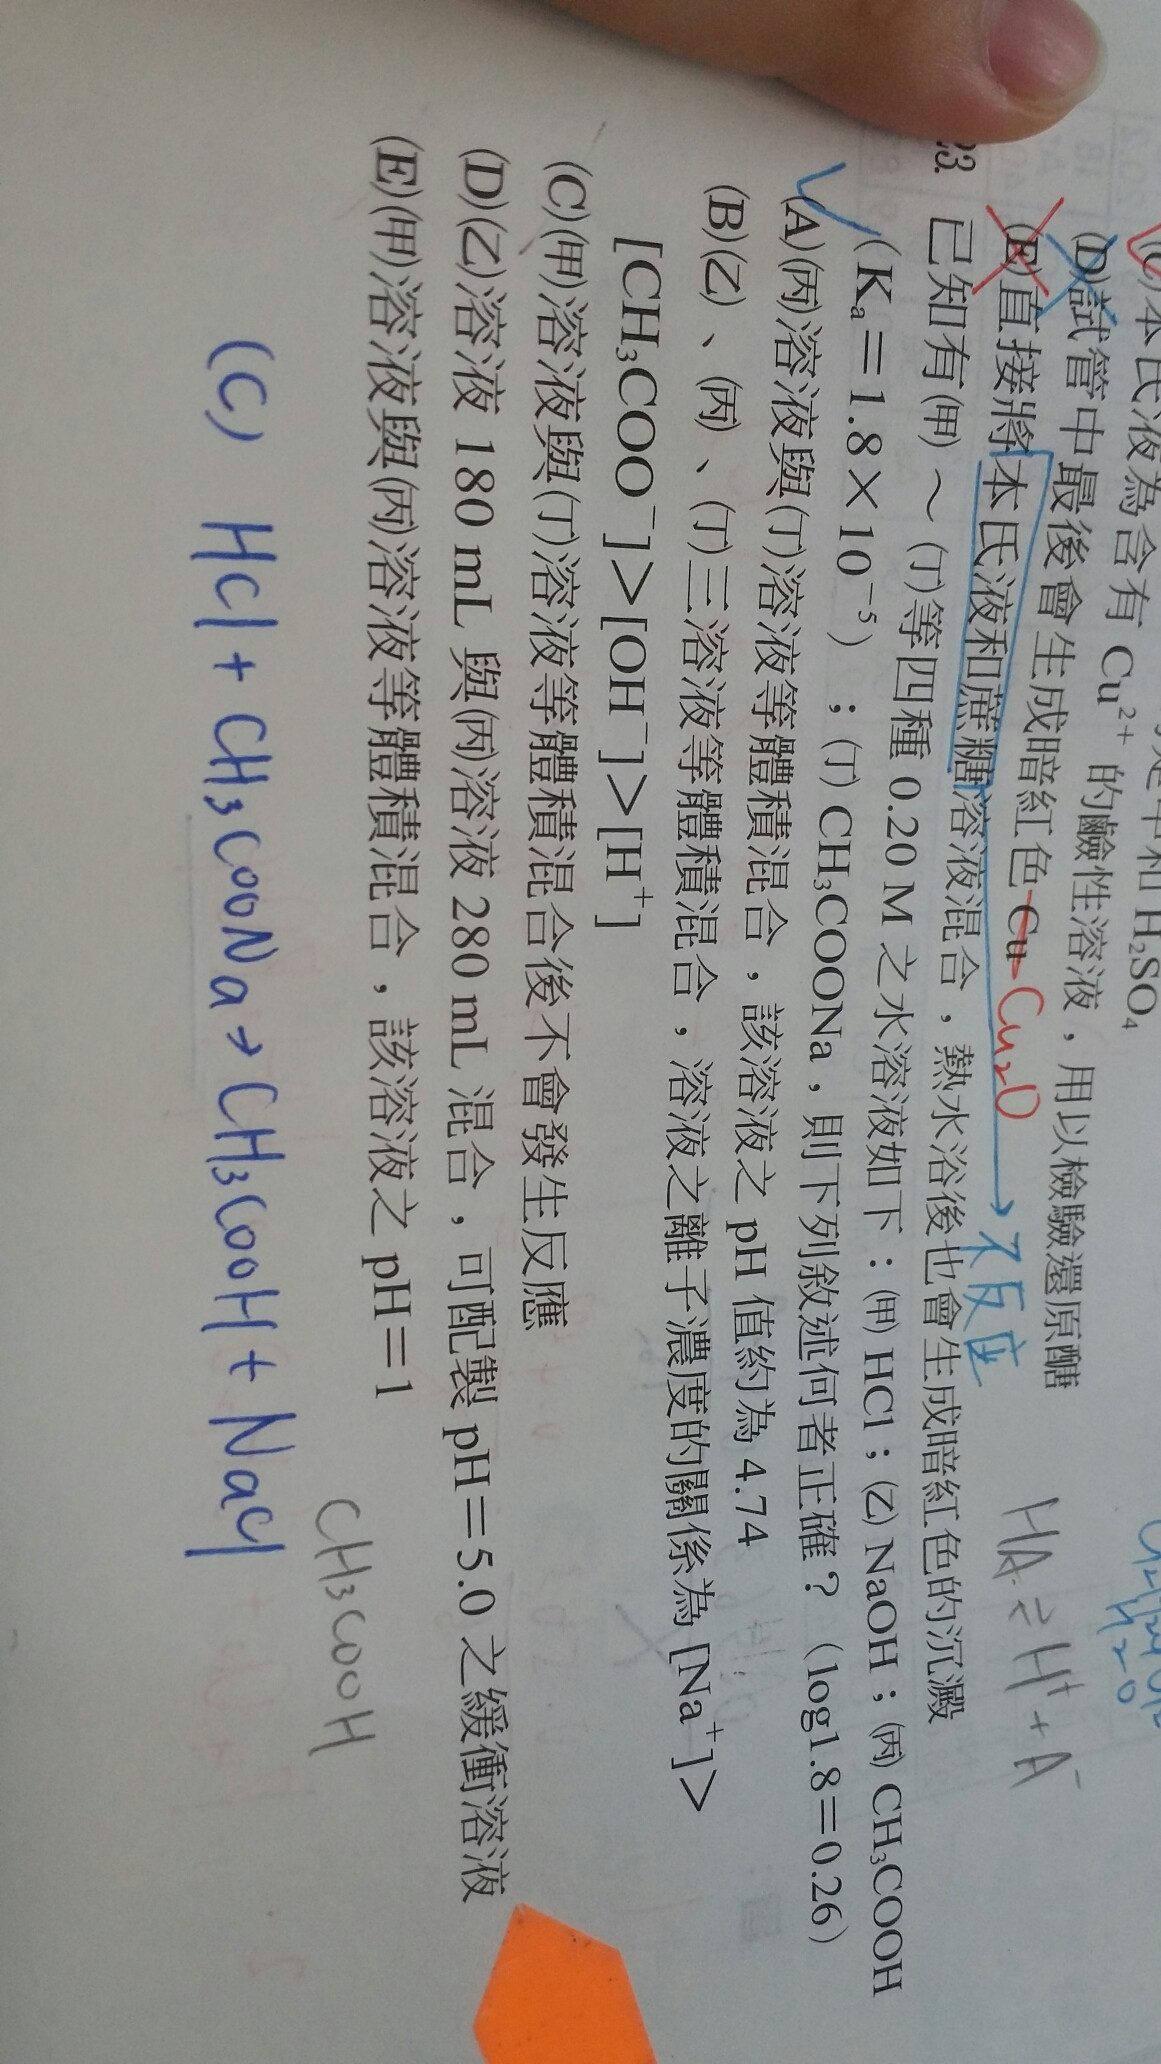 本氏液為含有 Cu²⁺ 的鹼性溶液，用以檢驗還原醣
(D)試管中最後會生成暗紅色 Cu Cu₂O
(E)直接將本氏液和蔗糖溶液混合，熱水浴後也會生成暗紅色的沉澱
不反应
HA ⇌ H⁺ + A⁻
23. 已知有㈙～㈜等四種 0.20 M 之水溶液如下：(甲) HCl；(乙) NaOH；(丙) CH₃COOH
（Kₐ＝1.8×10⁻⁵）；(丁) CH₃COONa，則下列敘述何者正確？（log1.8＝0.26）
(A)(丙)溶液與(丁)溶液等體積混合，該溶液之 pH 值約為 4.74
(B)(乙)、(丙)、(丁)三溶液等體積混合，溶液之離子濃度的關係為 [Na⁺]＞
[CH₃COO⁻]＞[OH⁻]＞[H⁺]
(C)(甲)溶液與(丁)溶液等體積混合後不會發生反應
(D)(乙)溶液 180 mL 與(丙)溶液 280 mL 混合，可配製 pH＝5.0 之緩衝溶液
(E)(甲)溶液與(丙)溶液等體積混合，該溶液之 pH＝1
CH₃COOH
(C) HCl + CH₃COONa → CH₃COOH + NaCl